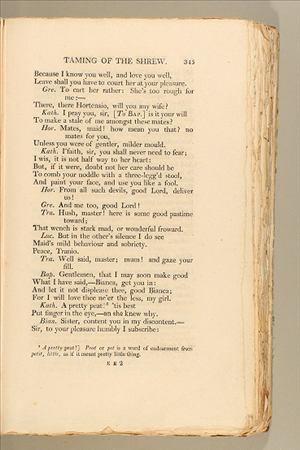 TAMING OF THE SHREW. 345
Because I know you well, and love you well,
Leave shall you have to court her at your pleasure.
Gre. To cart her rather: She's too rough for
me:—
There, there Hortensio, will you any wife?
Kath. I pray you, sir, [To BAP.] is it your will
To make a stale of me amongst these mates?
Hor. Mates, maid! how mean you that? no
mates for you,
Unless you were of gentler, milder mould.
Kath. I'faith, sir, you shall never need to fear;
I wis, it is not half way to her heart:
But, if it were, doubt not her care should be
To comb your noddle with a three-legg'd stool,
And paint your face, and use you like a fool.
Hor. From all such devils, good Lord, deliver
us!
Gre. And me too, good Lord!
Tra. Hush, master! here is some good pastime
toward;
That wench is stark mad, or wonderful froward.
Luc. But in the other's silence I do see
Maid's mild behaviour and sobriety.
Peace, Tranio.
Tra. Well said, master; mum! and gaze your
fill.
Bap. Gentlemen, that I may soon make good
What I have said,—Bianca, get you in:
And let it not displease thee, good Bianca;
For I will love thee ne'er the less, my girl.
Kath. A pretty peat!⁵ 'tis best
Put finger in the eye,—an she knew why.
Bian. Sister, content you in my discontent.—
Sir, to your pleasure humbly I subscribe:
A pretty peat!] Peat or pet is a word of endearment from
petit, little, as if it meant pretty little thing.